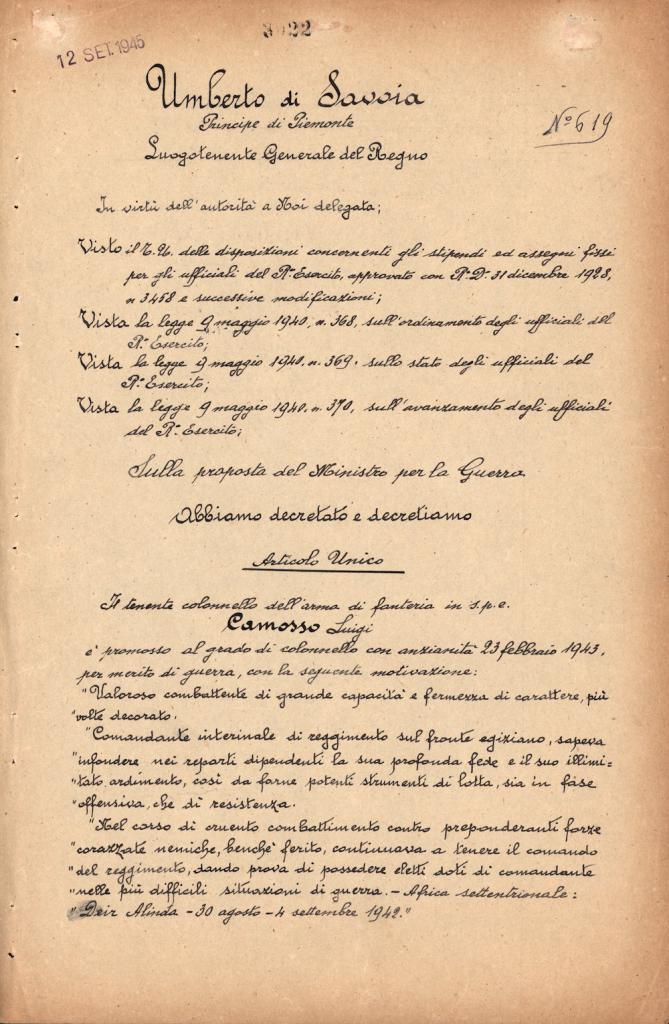 3922
12 SET. 1945
Umberto di Savoia
Principe di Piemonte
Nº 619
Luogotenente Generale del Regno
In virtù dell'autorità a Noi delegata;
Visto il T. U. delle disposizioni concernenti gli stipendi ed assegni fissi
per gli ufficiali del R.º Esercito, approvato con R.º D. 31 dicembre 1928,
n. 3458 e successive modificazioni;
Vista la legge 9 maggio 1940, n. 368, sull'ordinamento degli ufficiali del
R.º Esercito;
Vista la legge 9 maggio 1940. n. 369. sullo stato degli ufficiali del
R.º Esercito;
Vista la legge 9 maggio 1940. n. 370, sull'avanzamento degli ufficiali
del R.º Esercito;
Sulla proposta del Ministro per la Guerra
Abbiamo decretato e decretiamo
Articolo Unico
Il tenente colonnello dell'arma di fanteria in s.p.e.
Camosso Luigi
è promosso al grado di colonnello con anzianità 23 febbraio 1943,
per merito di guerra, con la seguente motivazione:
"Valoroso combattente di grande capacità e fermezza di carattere, più
"volte decorato.
"Comandante interinale di reggimento sul fronte egiziano, sapeva
"infondere nei reparti dipendenti la sua profonda fede e il suo illimi=
"tato ardimento, così da farne potenti strumenti di lotta, sia in fase
"offensiva, che di resistenza.
"Nel corso di cruento combattimento contro preponderanti forze
"corazzate nemiche, benchè ferito, continuava a tenere il comando
"del reggimento, dando prova di possedere eletti doti di comandante
"nelle più difficili situazioni di guerra. - Africa settentrionale:
"Deir Alinda - 30 agosto - 4 settembre 1942."